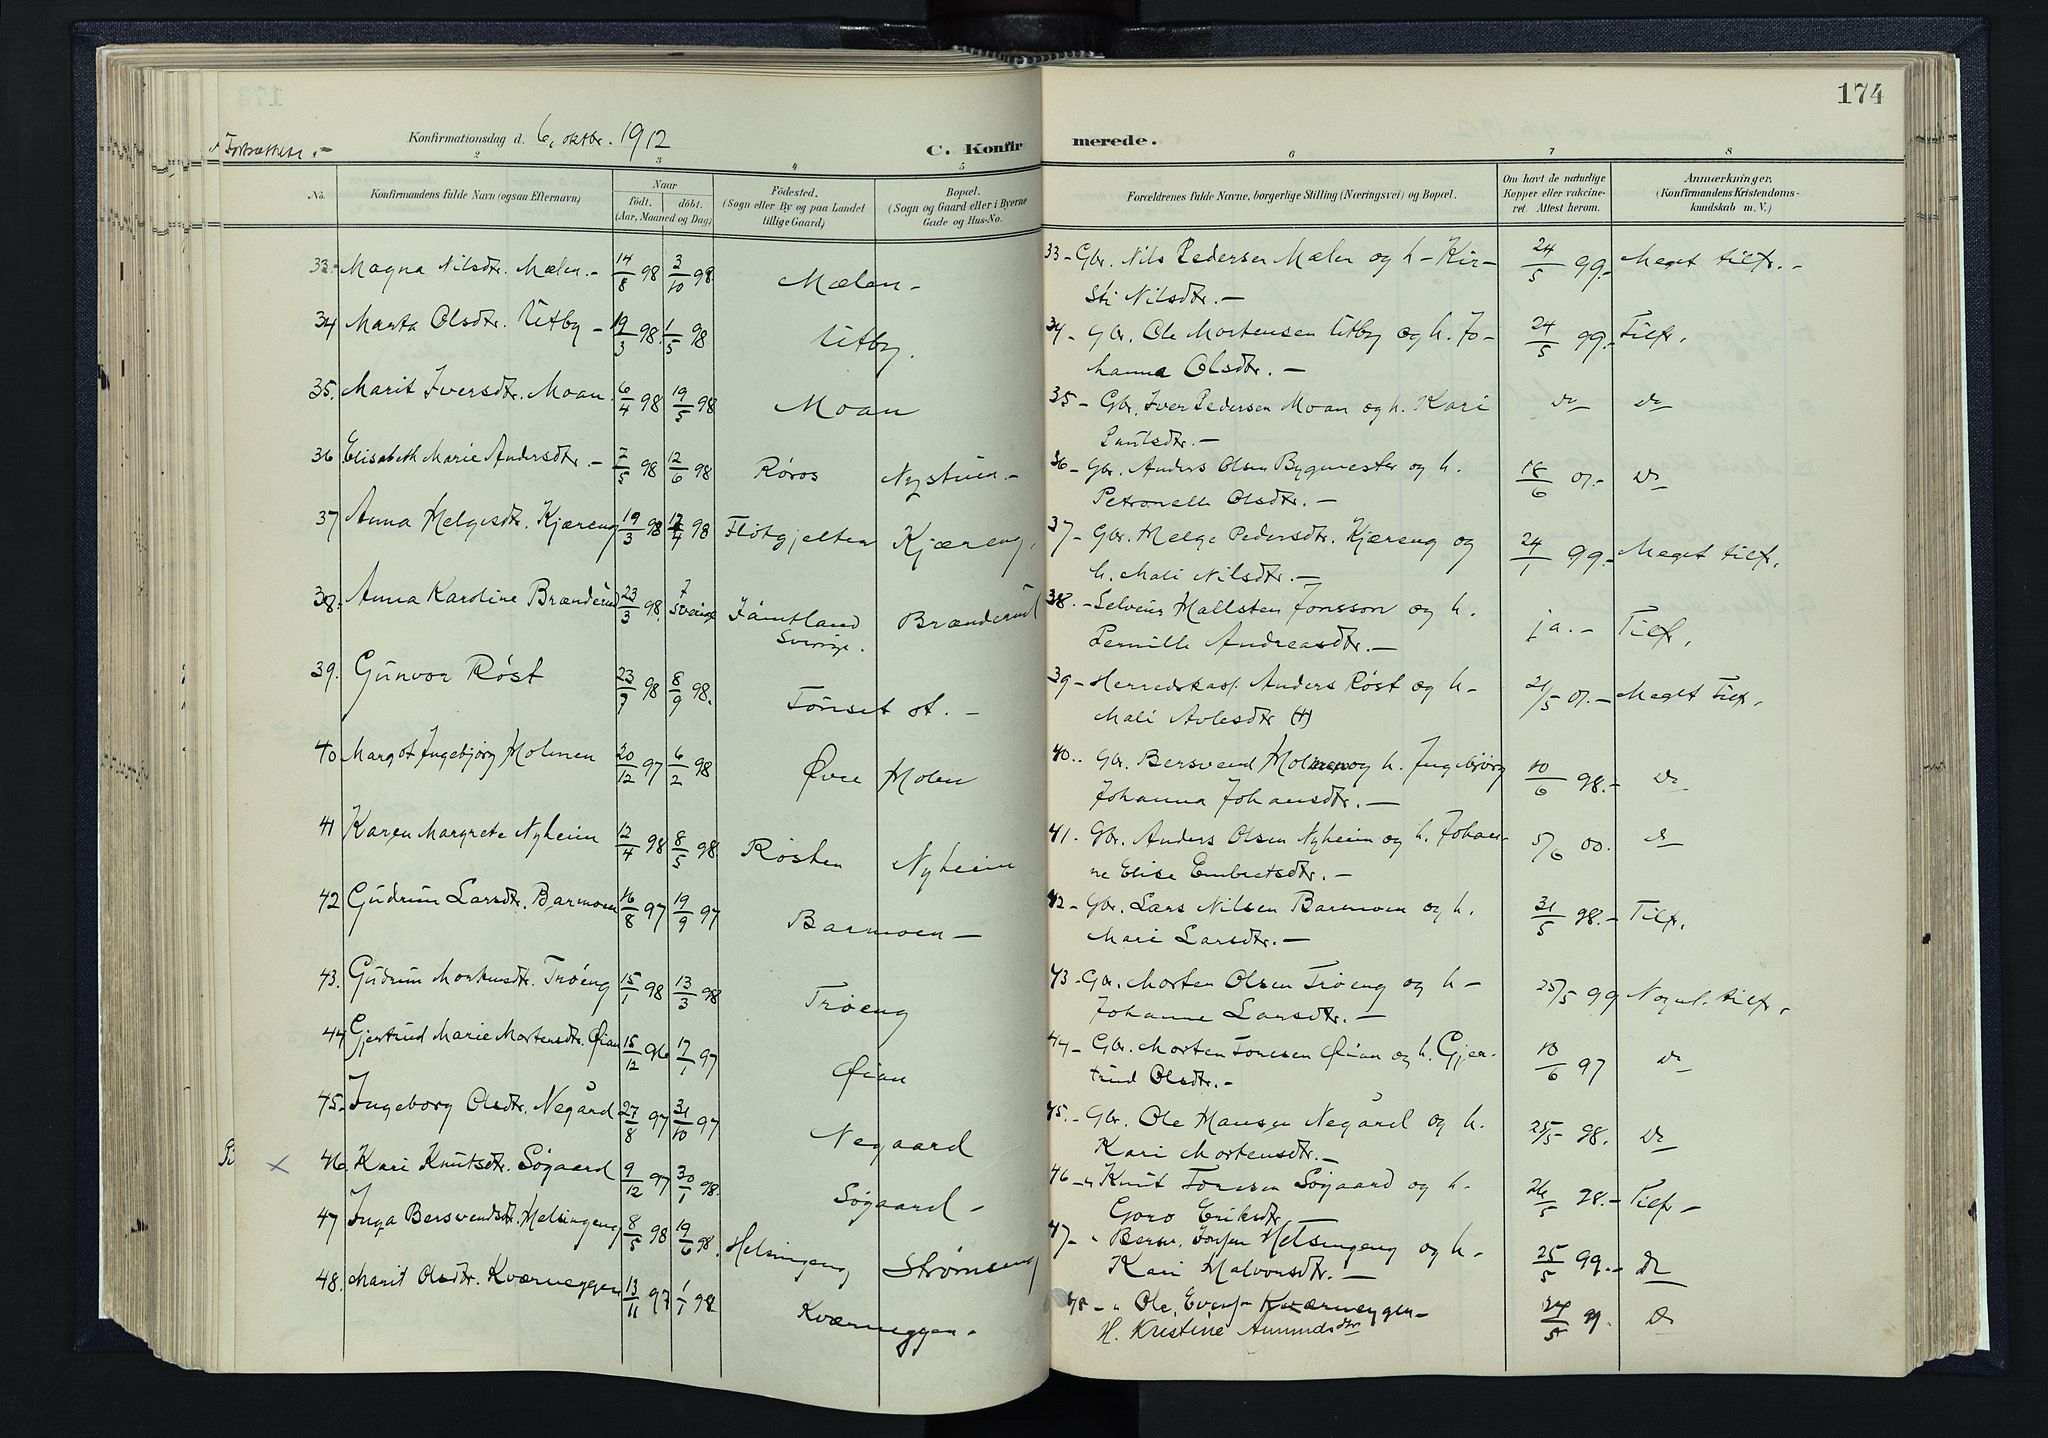 174
Fortsættelse.-
Konfirmationsdag d. 6, oktbr. 1912
C. Konfirmerede.
2 3 4 5 6 7 8
No. Konfirmandens fulde Navn (ogsaa Efternavn) Naar født. døbt. (Aar, Maaned og Dag) Födested. (Sogn eller By og paa Landet tillige Gaard) Bopæl. (Sogn og Gaard eller i Byerne Gade og Hus-No.
Forældrenes fulde Navne, borgerlige Stilling (Næringsvei) og Bopæl. Om havt de naturlige Kopper eller vakcineret. Attest herom. Anmærkninger, (Konfirmandens Kristendomskundskab m. V.)
33- Magna Nilsdtr. Mælen.- 14/8 98 3/10 98. Mælen- 33- Gbr. Nils Pedersen Mælen og h- Kir-
sti Nilsdtr.- 24/5 99.- Meget tilfr.-
34 Marta Olsdtr. Utby - 19/3 98. 1/5 98 Utby. 34- Gbr. Ole Mortensen Utby og h. Jo-
hanna Olsdtr.- 24/5 99.- Tilfr.
35. Marit Iversdtr. Moan. 6/4 98 19/5 98 Moan 35- Gbr. Iver Pedersen Moan og h. Kari
Paulsdtr.- Do Do
36 Elisabeth Marie Andersdtr.- 7/5 98 12/6 98 Røros Nystuen.- 36- Gbr. Anders Olsen Bygmester og h.
Petronelle Olsdtr.- 18/6 07.- Do
37 Anna Helgesdtr. Kjæreng 19/3 98 17/4 98 Fløtgjelten Kjæreng. 37- Gbr. Helge Pedersdtr. Kjæreng og
h. Mali Nilsdtr.- 24/1 99.- Meget tilfr.
38. Anna Karoline Brænderud 23/3 98. ? Sverige Jämtland Brænderud
Sverige. 38.- Selveier Hallsten Jonsson og h.
Pernille Andreasdtr.- ja.- Tilfr.
39. Gunvor Røst 23/7 98 8/9 98. Tønset st.- 39- Herredskas. Anders Røst og h-
Mali Avlesdtr (+) 21/5 07.- Meget Tilfr.
40 Margot Ingebjørg Holmen 20/12 97 6/2 98 Øvre Holen 40.. Gbr. Bersvend Holmen og h. Ingebjørg
Johanna Johansdtr.- 10/6 98.- Do
41 Karen Margrete Nyheim 12/4 98 8/5 98 Røsten Nyheim 41. Gbr. Anders Olsen Nyheim og h. Johan-
ne Elise Embretsdtr.- 5/6 00. Do
42 Gudrun Larsdtr. Barmoen 16/8 97 19/9 97 Barmoen- 42- Gbr. Lars Nilsen Barmoen og h.
Mari Larsdtr.- 31/5 98.- Tilfr.
43. Gudrun Mortensdtr. Trøeng 15/1 98 13/3 98 Trøeng 43- Gbr. Morten Olsen Trøeng og h-
Johanne Larsdtr.- 25/5 99 Nogenl. tilfr.
44 Gjertrud Marie Mortensdtr. Øian 15/12 96 17/1 97 Øian 44- Gbr. Morten Tonesen Øian og h. Gjer-
trud Olsdtr.- 10/6 97 Do
45- Ingeborg Olsdtr. Negård 27/8 97 31/10 97 Negaard 45.- Gbr. Ole Hansen Negård og h.
Kari Mortensdtr.- 25/5 98. Do
× 46. Kari Knutsdtr. Søgaard 9/12 97 30/1 98. Søgaard- 46-" Knut Tonesen Søgaard og h.
Goro Eriksdtr- 26/5 98.- Tilfr-
47 Inga Bersvendsdtr. Helsingeng 8/5 98 19/6 98. Helsingeng Strømseng 47-" Bersv. Jonsen Helsingeng og h-
Kari Halvorsdtr.- 25/5 99.- Do
48. Marit Olsdtr. Kværneggen 13/11 97 1/1 98 Kværneggen- 48-" Ole Evens. Kværneggen-
H. Kristine Amundsdtr 24/5 99. Do